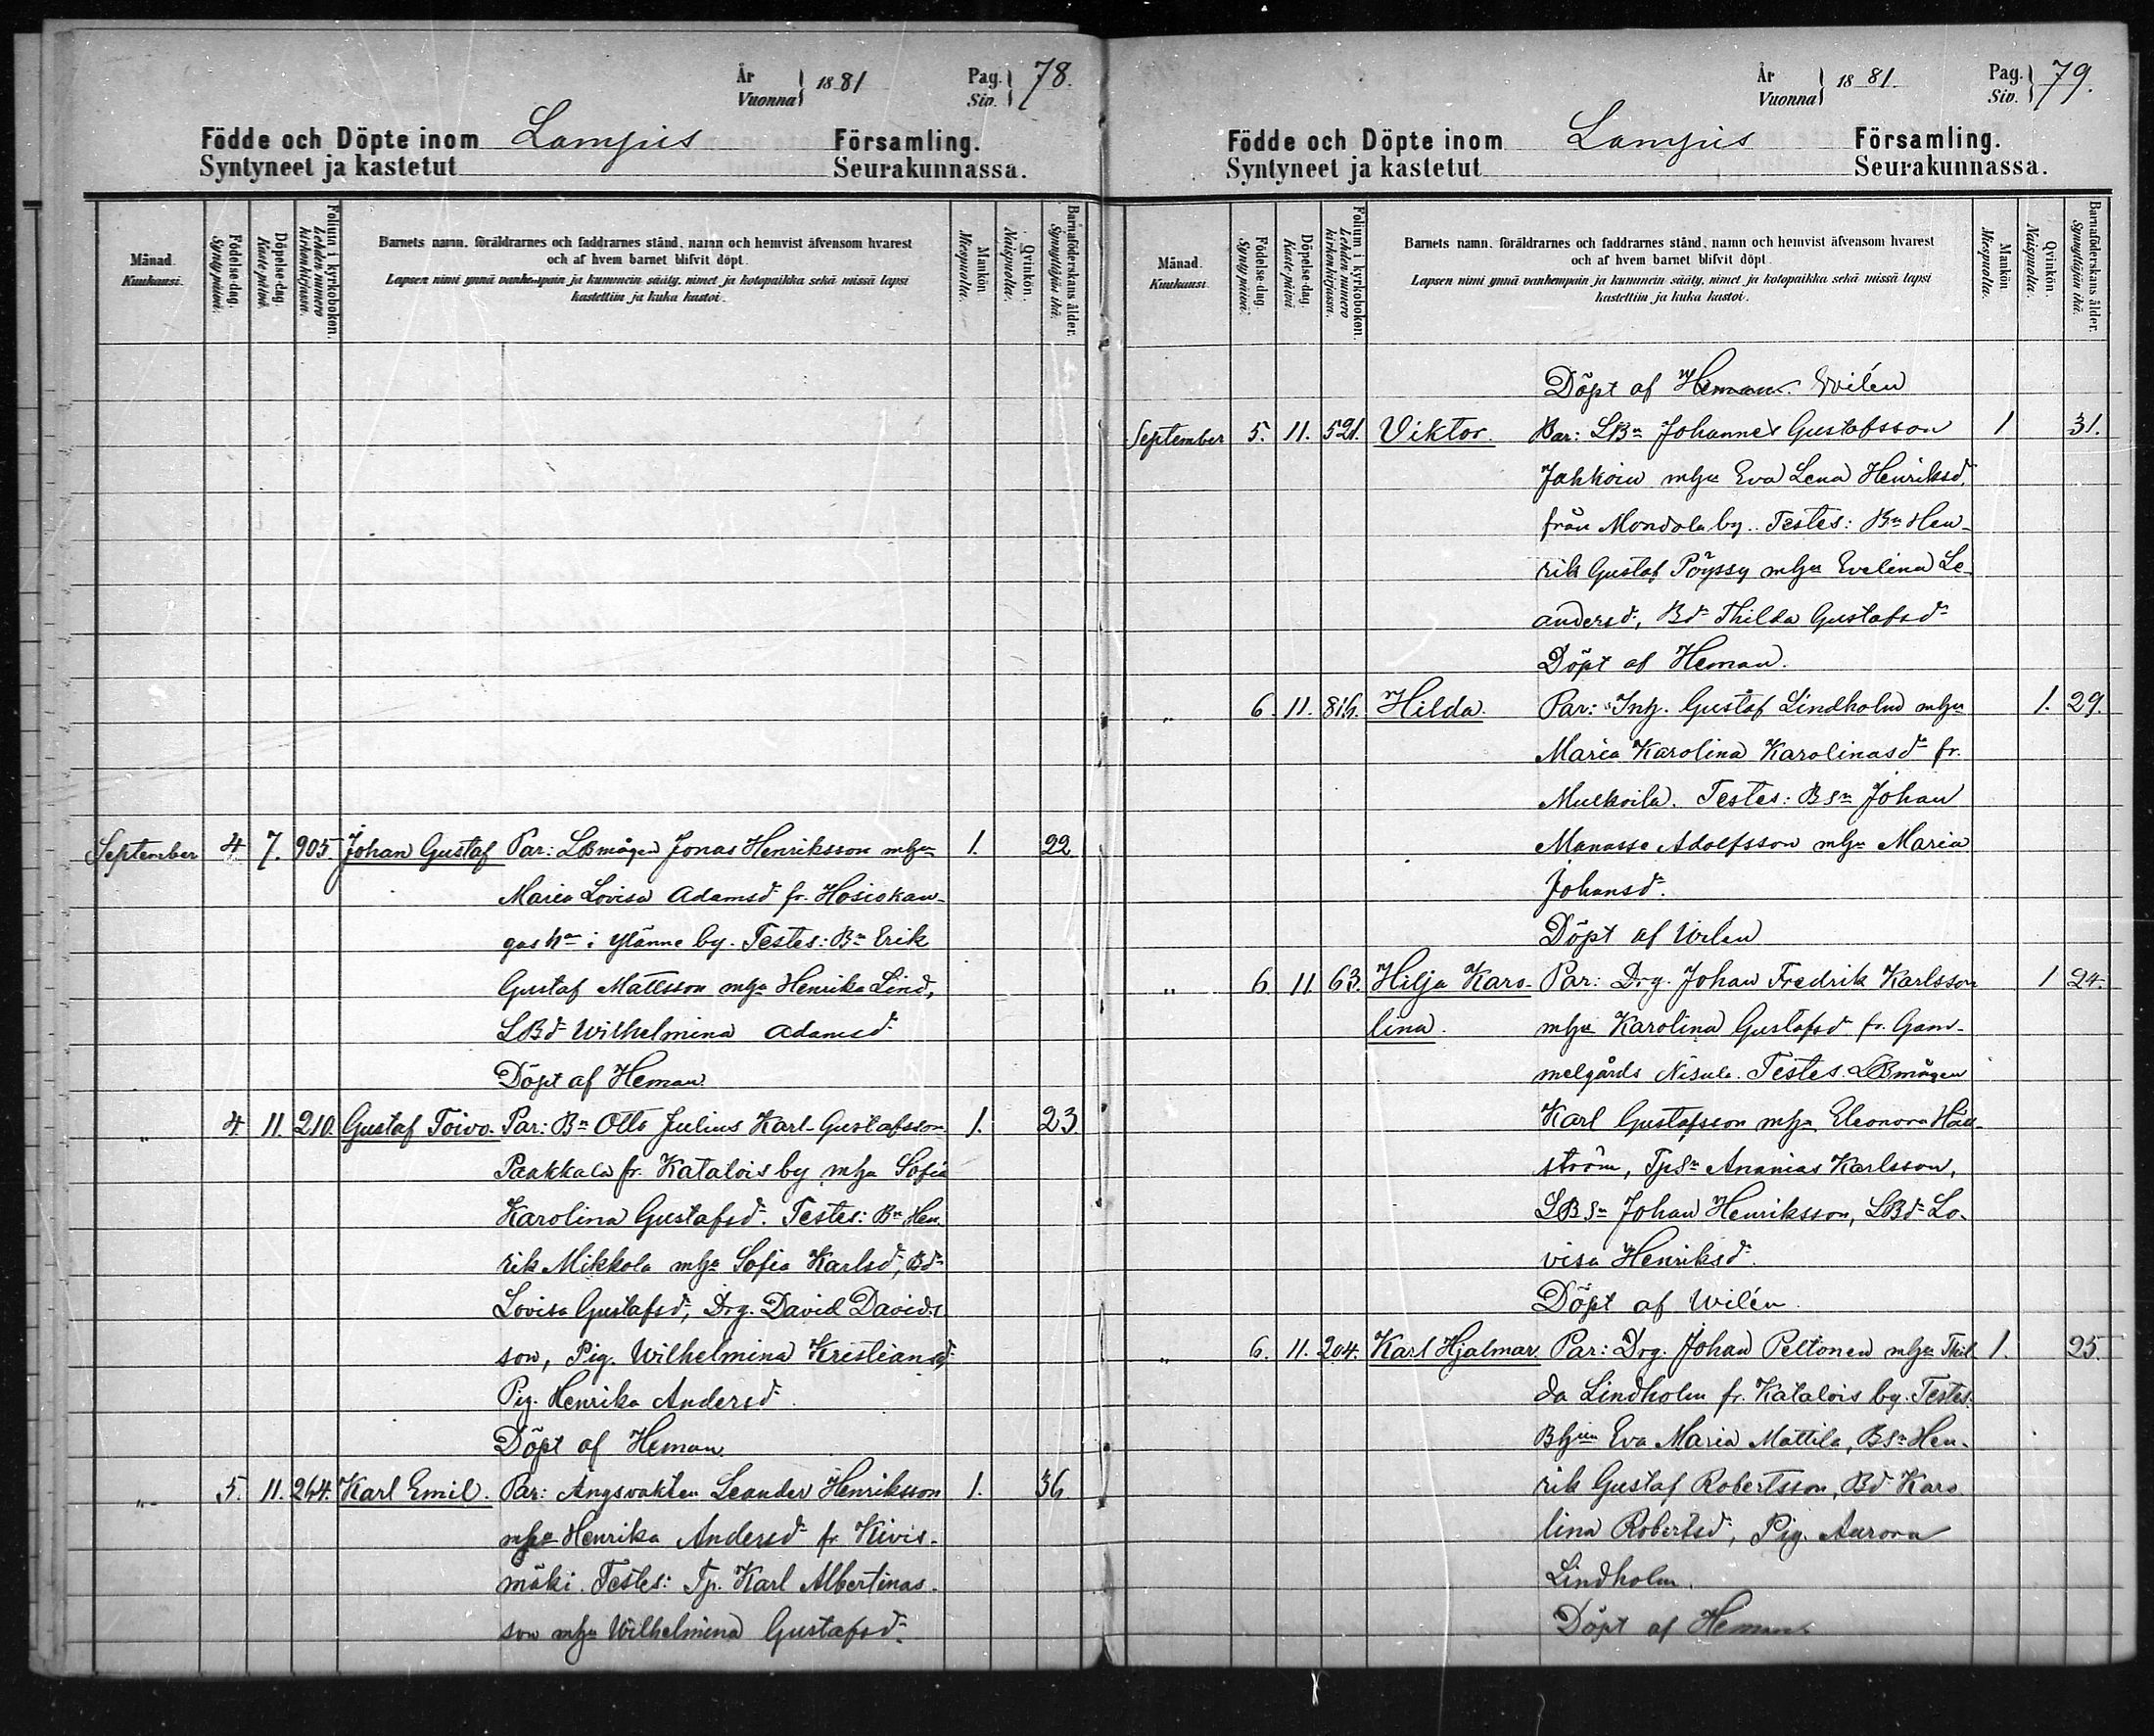 År
Vuonna 1881
Pag.
Siv. 78.
Födde och Döpte inom Lampis Församling.
Syntyneet ja kastetut Seurakunnassa.
Månad.
Kuukausi.
Födelse-dag.
Syntypäivä.
Döpelse-dag.
Kaste-päivä.
Folium i kyrkoboken.
Lehden numero kirkonkirjassa.
Barnets namn, föräldrarnes och faddrarnes stånd, namn och hemvist äfvensom hvarest
och af hvem barnet blifvit döpt.
Lapsen nimi ynnä vanhempain ja kummein sääty, nimet ja kotopaikka sekä missä lapsi
kastettiin ja kuka kastoi.
Mankön.
Miespuolia.
Qvinkön.
Naispuolia.
Barnaföderskans ålder.
Synnyttäjän ikä.
September 4. 7. 905. Johan Gustaf Par: LBmågen Jonas Henriksson mhu 1. 22
Maria Lovisa Adamsd fr. Hosiokan-
gas hn i Ylänne by. Testes: Bn Erik
Gustaf Mattsson mhu Henrika Lind,
LBd Wilhelmina Adamsd
Döpt af Heman
„ 4. 11. 210. Gustaf Toivo. Par: Bn Otto Julius Karl Gustafsson 1. 23.
Paakkala fr. Katalois by mhu Sofia
Karolina Gustafsd. Testes: Bn Hen
rik Mikkola mhu Sofia Karlsd, Bd
Lovisa Gustafsd, Drg. David Davids
son, Pig. Wilhelmina Kristiansd
Pig. Henrika Andersd
Döpt af Heman
„ 5. 11. 264. Karl Emil. Par: Ängsvakten Leander Henriksson 1. 36
mhu Henrika Andersd fr. Kivis-
mäki. Testes: Tp. Karl Albertinas-
son mhu Wilhelmina Gustafsd.
År
Vuonna 1881.
Pag.
Siv. 79.
Födde och Döpte inom Lampis Församling.
Syntyneet ja kastetut Seurakunnassa.
Månad.
Kuukausi.
Födelse-dag.
Syntypäivä.
Döpelse-dag.
Kaste-päivä.
Folium i kyrkoboken.
Lehden numero kirkonkirjassa.
Barnets namn, föräldrarnes och faddrarnes stånd, namn och hemvist äfvensom hvarest
och af hvem barnet blifvit döpt.
Lapsen nimi ynnä vanhempain ja kummein sääty, nimet ja kotopaikka sekä missä lapsi
kastettiin ja kuka kastoi.
Mankön.
Miespuolia.
Qvinkön.
Naispuolia.
Barnaföderskans ålder.
Synnyttäjän ikä.
Döpt af Heman. Wilén
September 5. 11. 521. Viktor. Par: LBn Johannes Gustafsson 1 31.
Jahkoin mhu Eva Lena Henriksd,
från Mondola by. Testes: Bn Hen-
rik Gustaf Pöyssy mhu Evelina Le-
andersd, Bd Thilda Gustafsd
Döpt af Heman.
„ 6. 11. 816. Hilda. Par: Inh. Gustaf Lindholm mhu 1. 29.
Maria Karolina Karolinasd fr.
Mulkoila. Testes: BSn Johan
Manasse Adolfsson mhu Maria
Johansd.
Döpt af Wilen
„ 6. 11. 63. Hilja Karo- Par: Drg. Johan Fredrik Karlsson 1 24.
lina. mhu Karolina Gustafsd fr. Gam-
melgårds Nisula. Testes. LBmågen
Karl Gustafsson mhu Eleonora
ström, TpSn Ananias Karlsson,
LBSn Johan Henriksson, LBd Lo-
visa Henriksd.
Döpt af Wilén
„ 6. 11. 204. Karl Hjalmar. Par: Drg. Johan Peltonen mhu Thil 1. 25.
da Lindholm fr. Katalois by. Testes.
Bhun Eva Maria Mattila, BSn Hen-
rik Gustaf Robertsson, Bd Karo
lina Robertsd, Pig. Aurora
Lindholm.
Döpt af Heman